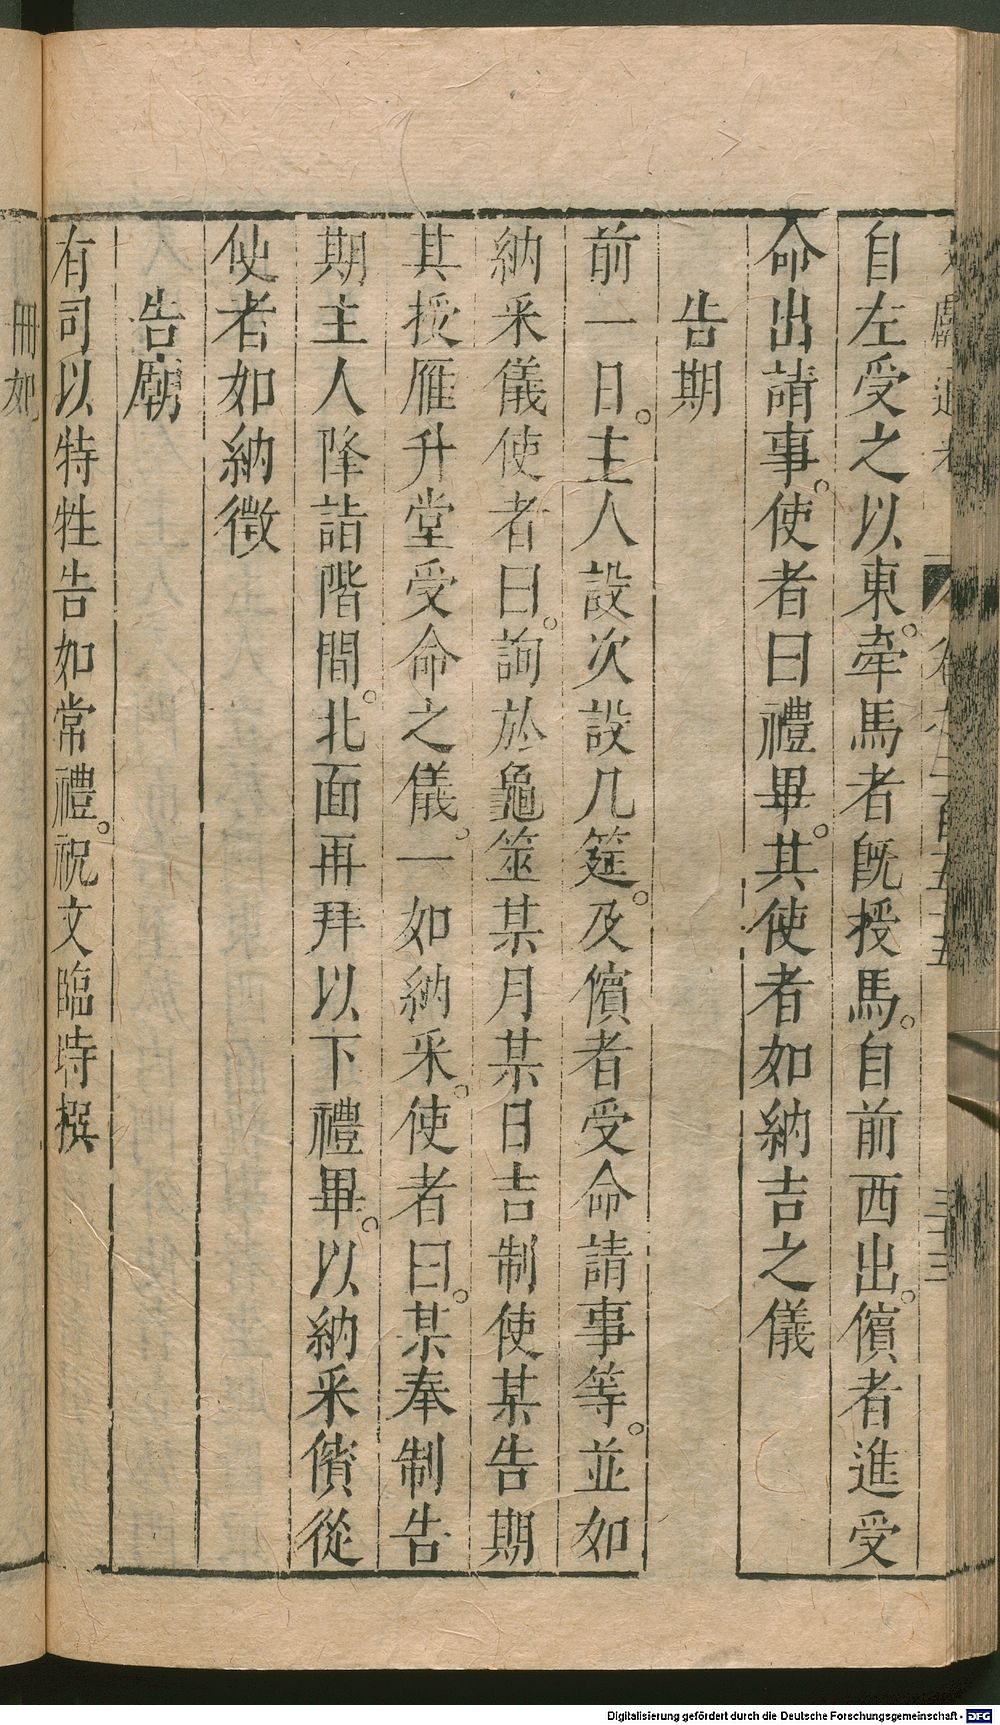 自左受之以東。牽馬者旣授馬。自前西出。儐者進受
命出請事。使者曰禮畢。其使者如納吉之儀
告期
前一日。主人設次設几筵。及儐者受命請事等。並如
納采儀使者曰。詢於龜筮某月某日吉制使某告期
其授雁升堂受命之儀。一如納采。使者曰。某奉制告
期主人降詣階間。北面再拜以下禮畢。以納采儐從
使者如納徵
告廟
有司以特牲告如常禮。祝文臨時撰
冊如
Digitalisierung gefördert durch die Deutsche Forschungsgemeinschaft - DFG